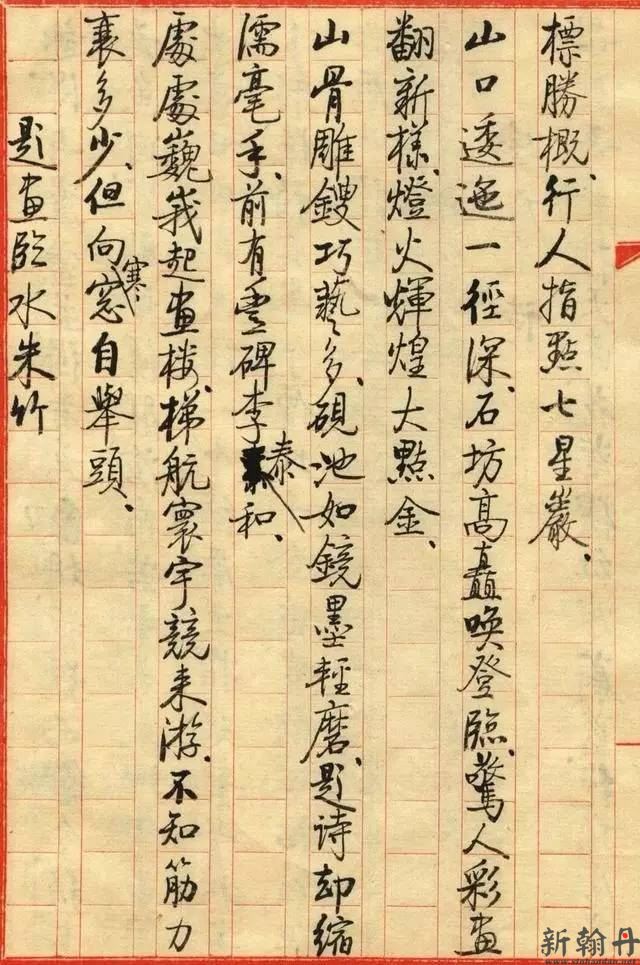 標勝概、行人指點七星巖、
山口逶迤一徑深、石坊高矗喚登臨、驚人彩畫
翻新樣、燈火輝煌大點金、
山骨雕鎪巧藝多、硯池如鏡墨輕磨、題詩却縮
濡毫手、前有豐碑李泰和、
處處巍峩起畫楼、梯航寰宇競来游、不知筋力
衰多少、但向寒窓自舉頭、
題畫臨水朱竹
新翰丹